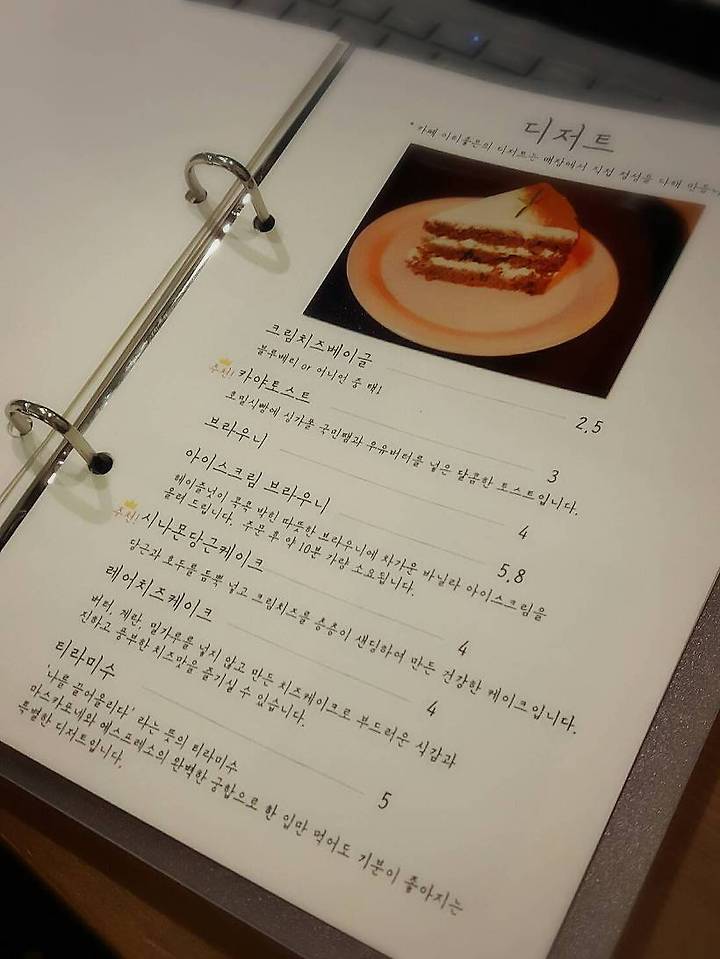 디저트
* 카페 이리출몬의 디저트는 매장에서 직접 정성을 다해 만듭니
크림치즈베이글 2,5
블루베리 or 어니언 중 택1
추천! 카야토스트 3
호밀식빵에 싱가폴 국민잼과 우유버터를 넣은 달콤한 토스트입니다.
브라우니 4
아이스크림 브라우니 5,8
헤이즐넛이 콕콕 박힌 따뜻한 브라우니에 차가운 바닐라 아이스크림을
올려 드립니다. 주문 후 약 10분 가량 소요됩니다.
추천! 시나몬당근케이크 4
당근과 호두를 듬뿍 넣고 크림치즈를 층층이 샌딩하여 만든 건강한 케이크입니다.
레어치즈케이크 4
버터, 계란, 밀가루를 넣지 않고 만든 치즈케이크로 부드러운 식감과
진하고 풍부한 치즈맛을 즐기실 수 있습니다.
티라미수 5
'나를 끌어올리다' 라는 뜻의 티라미수
마스카포네와 에스프레소의 완벽한 궁합으로 한 입만 먹어도 기분이 좋아지는
특별한 디저트입니다.